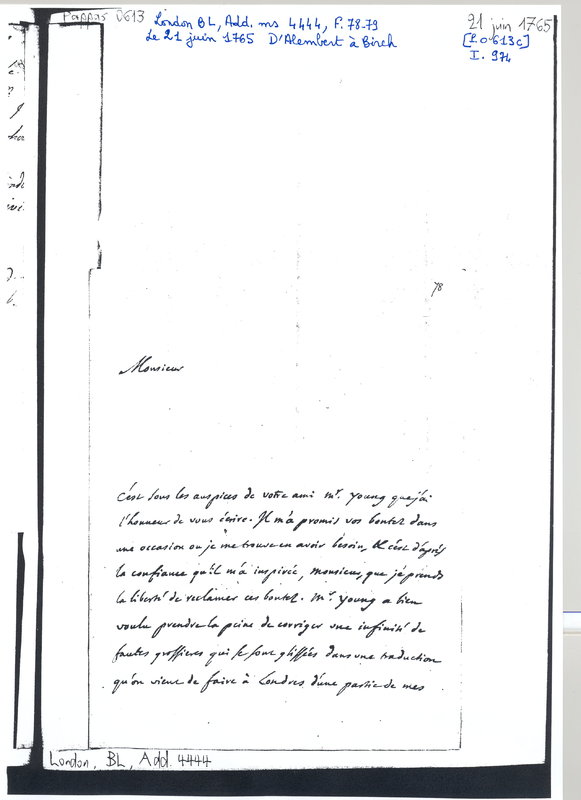 Pappas 0613
London BL, Add. ms 4444, F. 78-79
Le 21 juin 1765 D'Alembert à Birch
21 juin 1765
[P.0613c]
I. 974
78
Monsieur
c'est sous les auspices de votre ami mr. young que j'ai
l'honneur de vous écrire. Il m'a promis vos bontez dans
une occasion ou je me trouve en avoir besoin, et c'est d'après
la confiance qu'il m'a inspirée, monsieur, que je prends
la liberté de reclamer ces bontez. mr. young a bien
voulu prendre la peine de corriger une infinité de
fautes grossieres qui se sont glissées dans une traduction
qu'on vient de faire à Londres d'une partie de mes
London, BL, Add. 4444